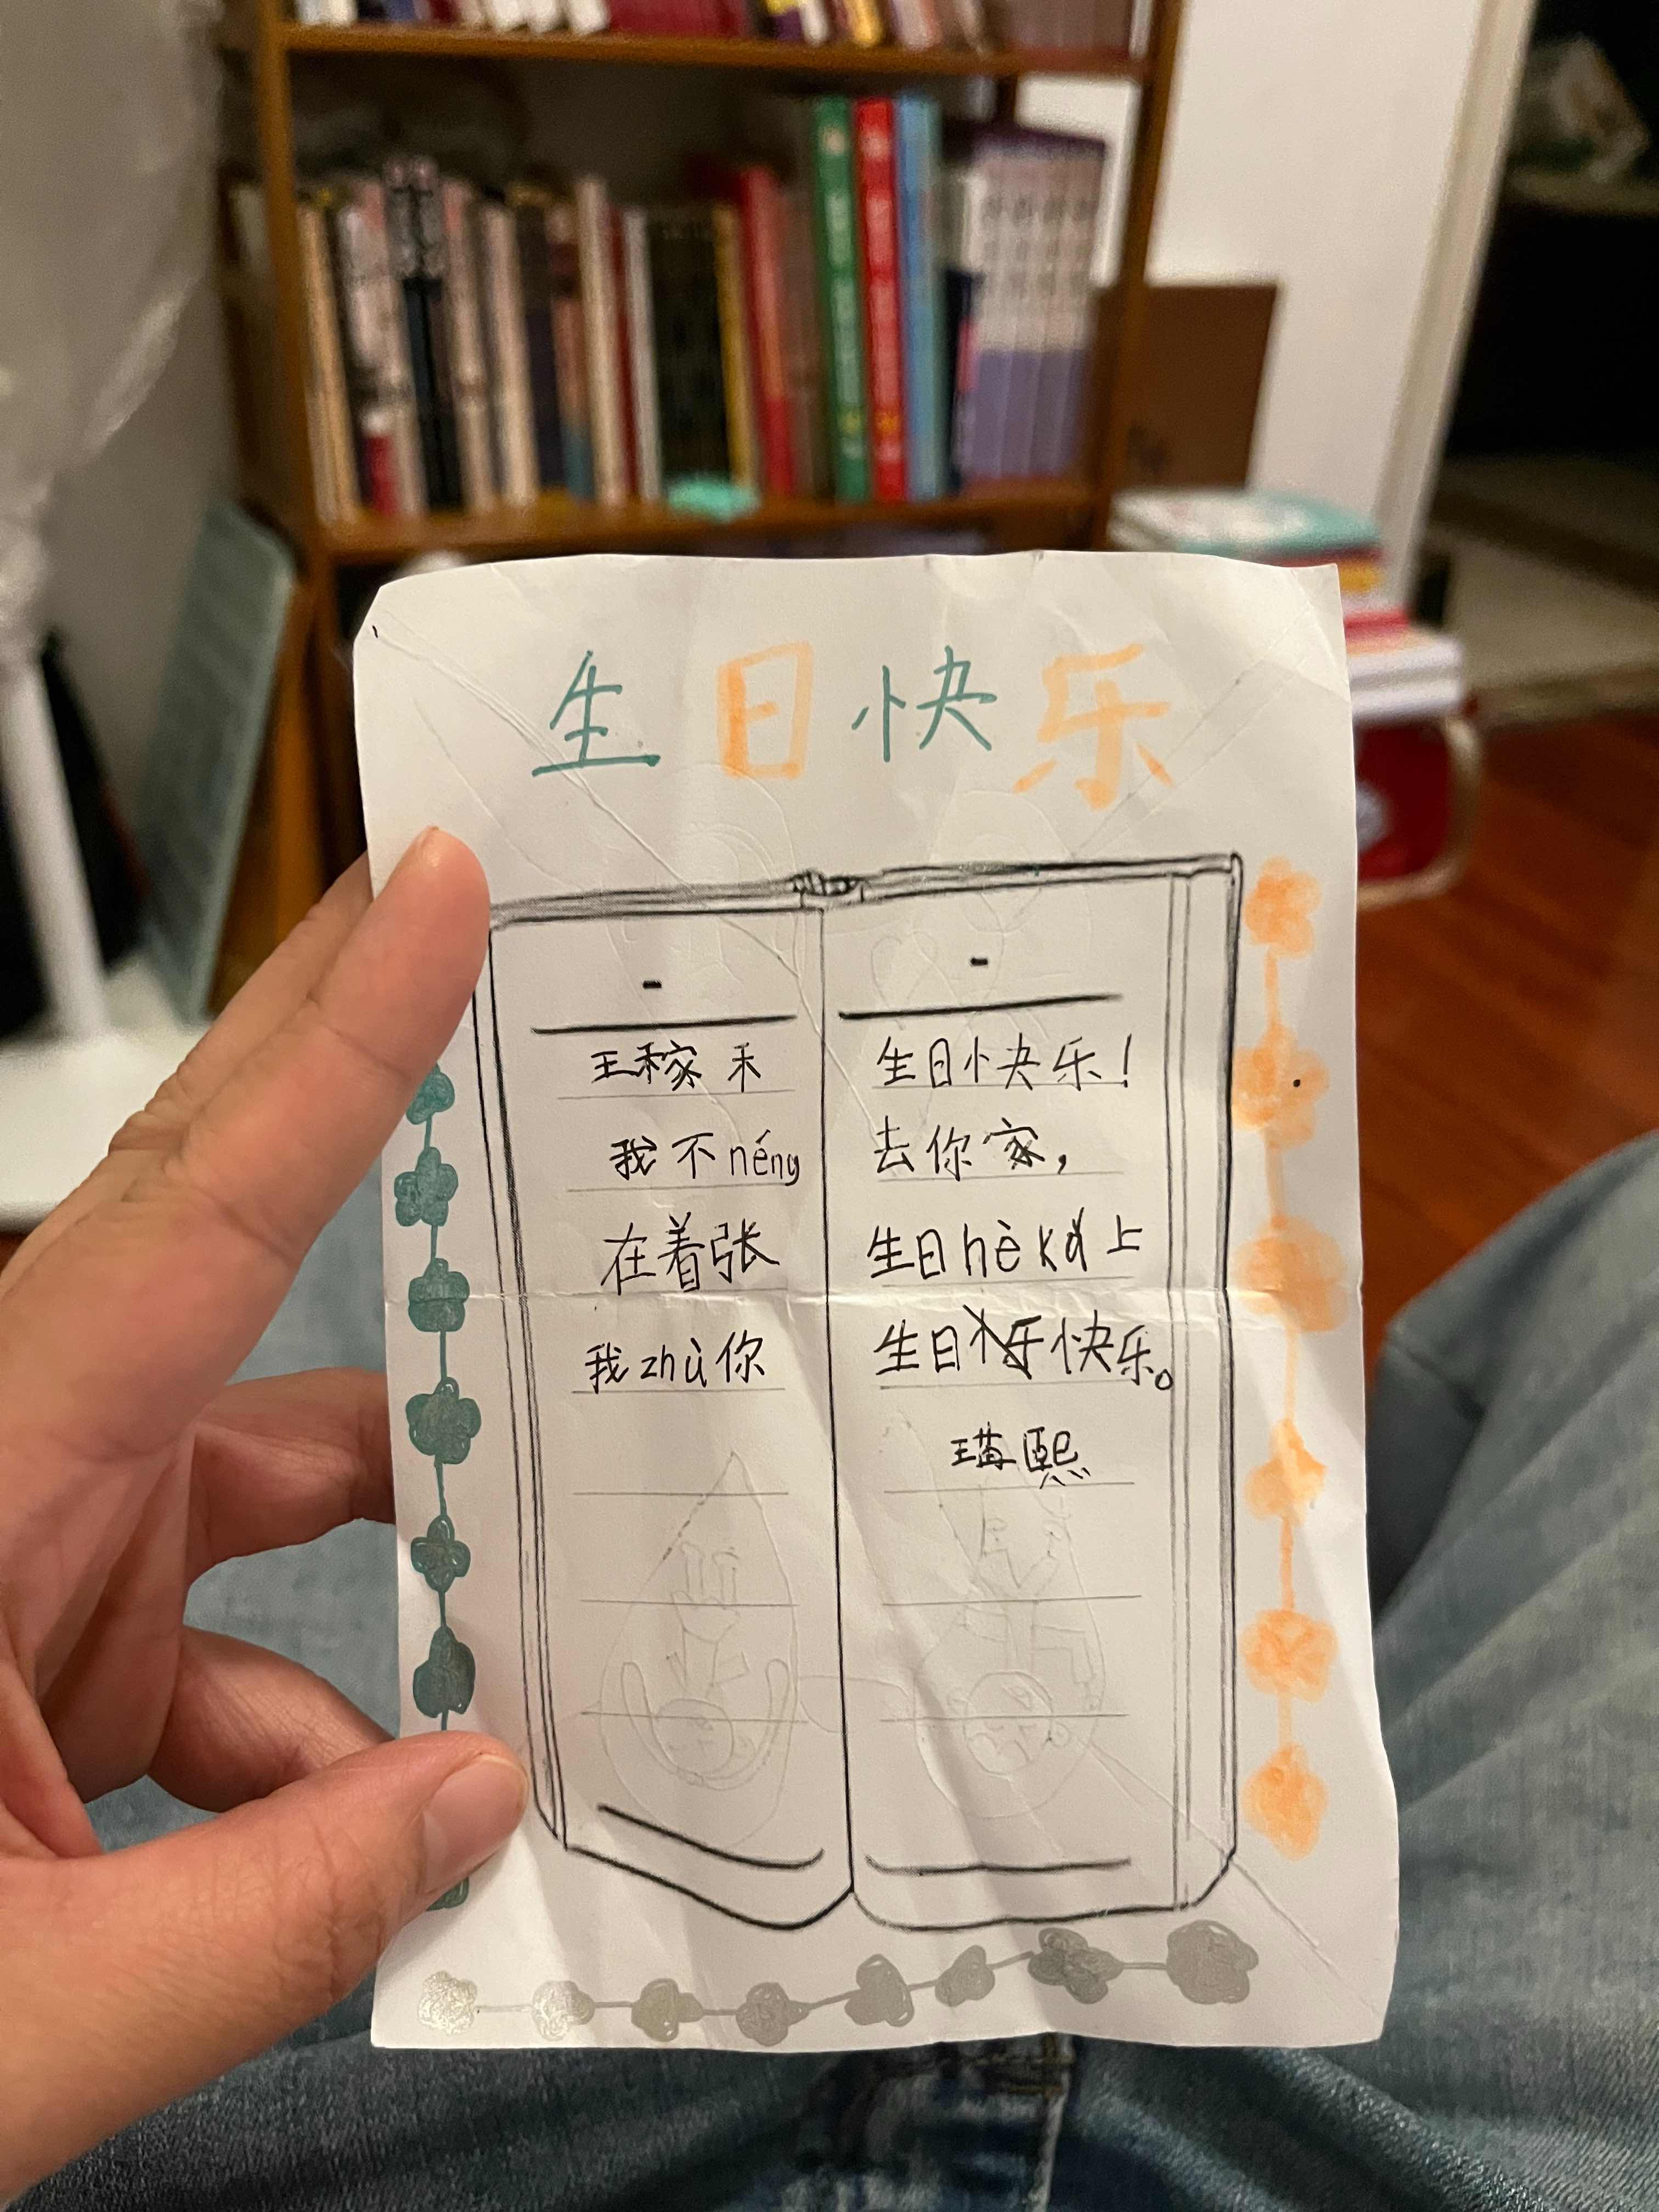 生日快乐
王稼禾 生日快乐！
我不néng 去你家，
在着张 生日hèkǎ上
我zhù你 生日快乐。
瑾熙